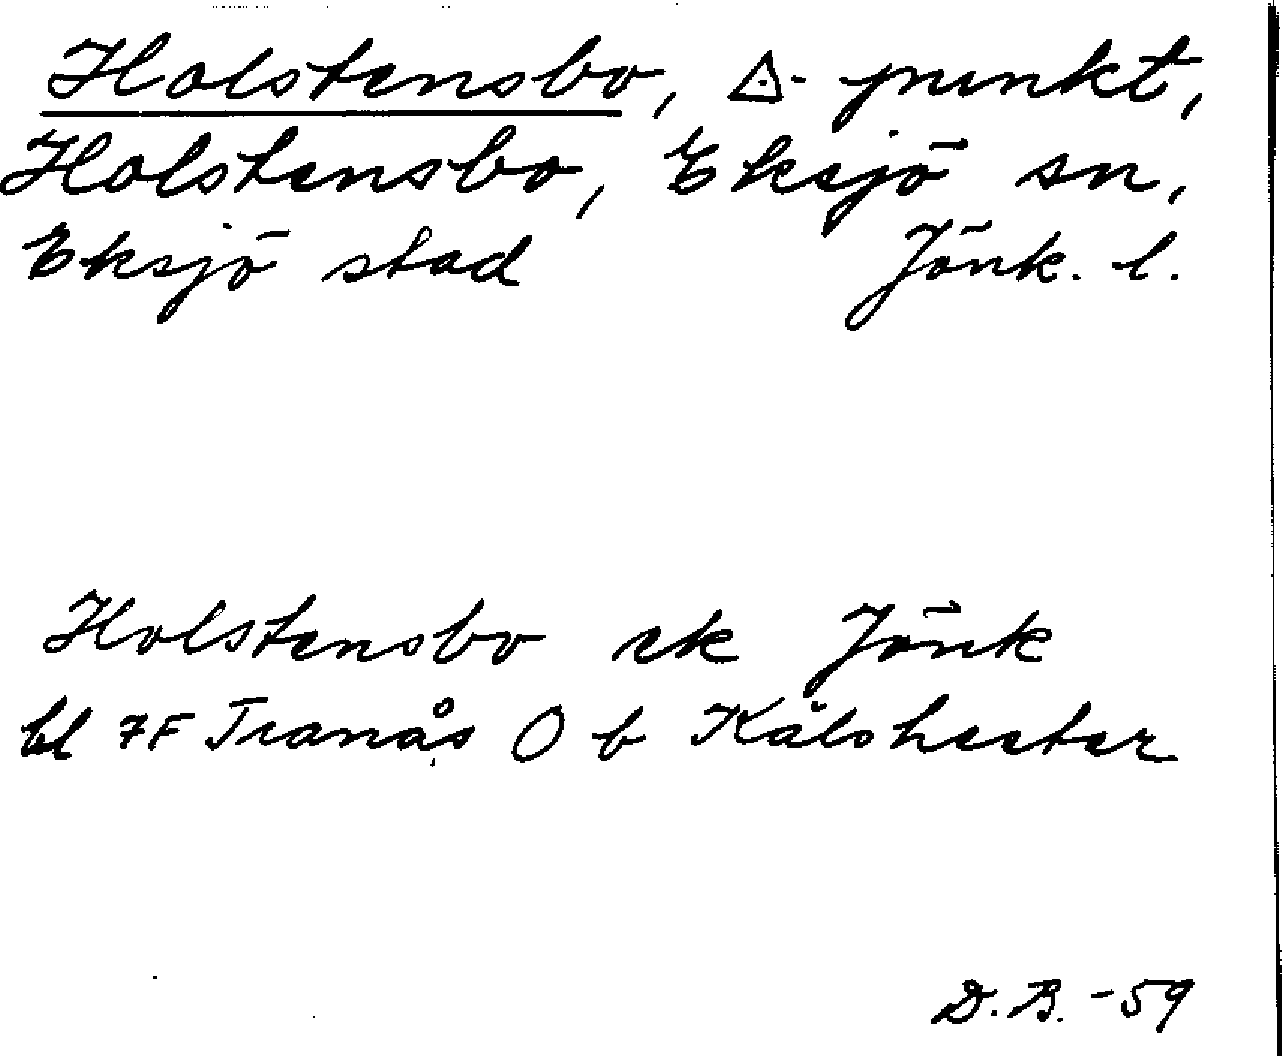 Holstensbo, △-punkt,
Holstensbo, Eksjö sn,
Eksjö stad Jönk. l.
Holstensbo ek Jönk
bl 7F Tranås O b Kålshester
D.B. -59